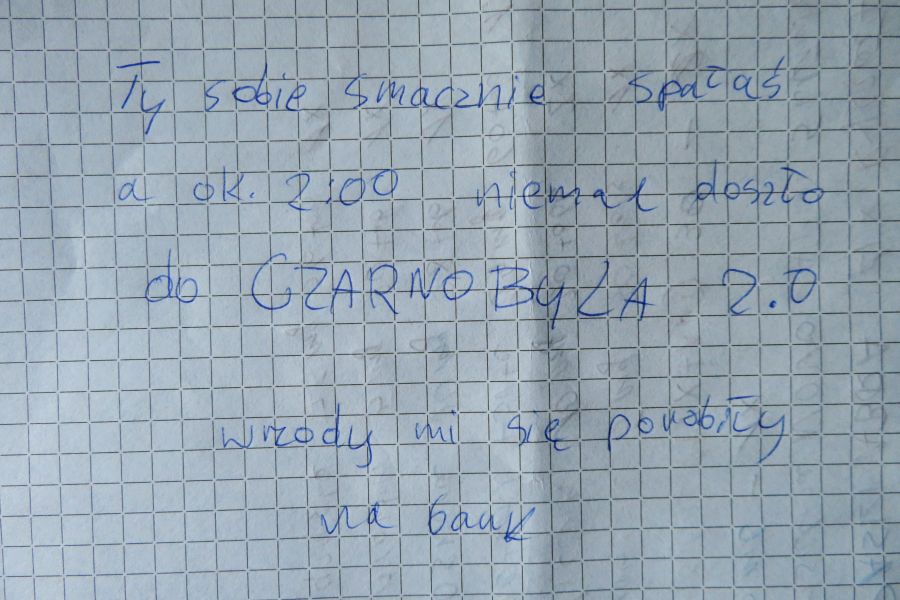 Ty sobie smacznie spałaś
a ok. 2:00 niemal doszło
do CZARNOBYLA 2.0
wrzody mi się porobiły
na bank